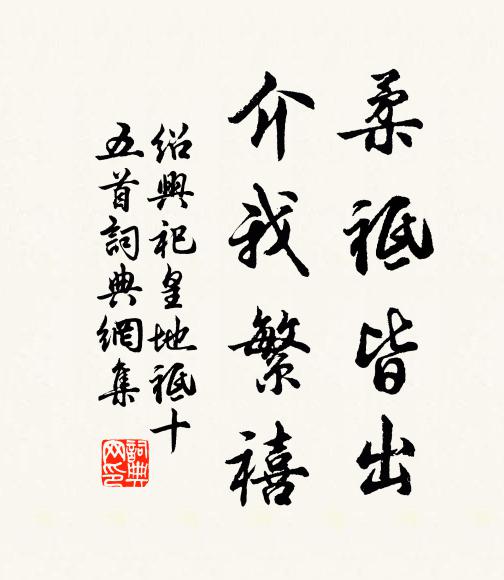 柔祗皆出
介我繁禧
紹興祀皇地祗十
五首詞典網集
詞典
网印